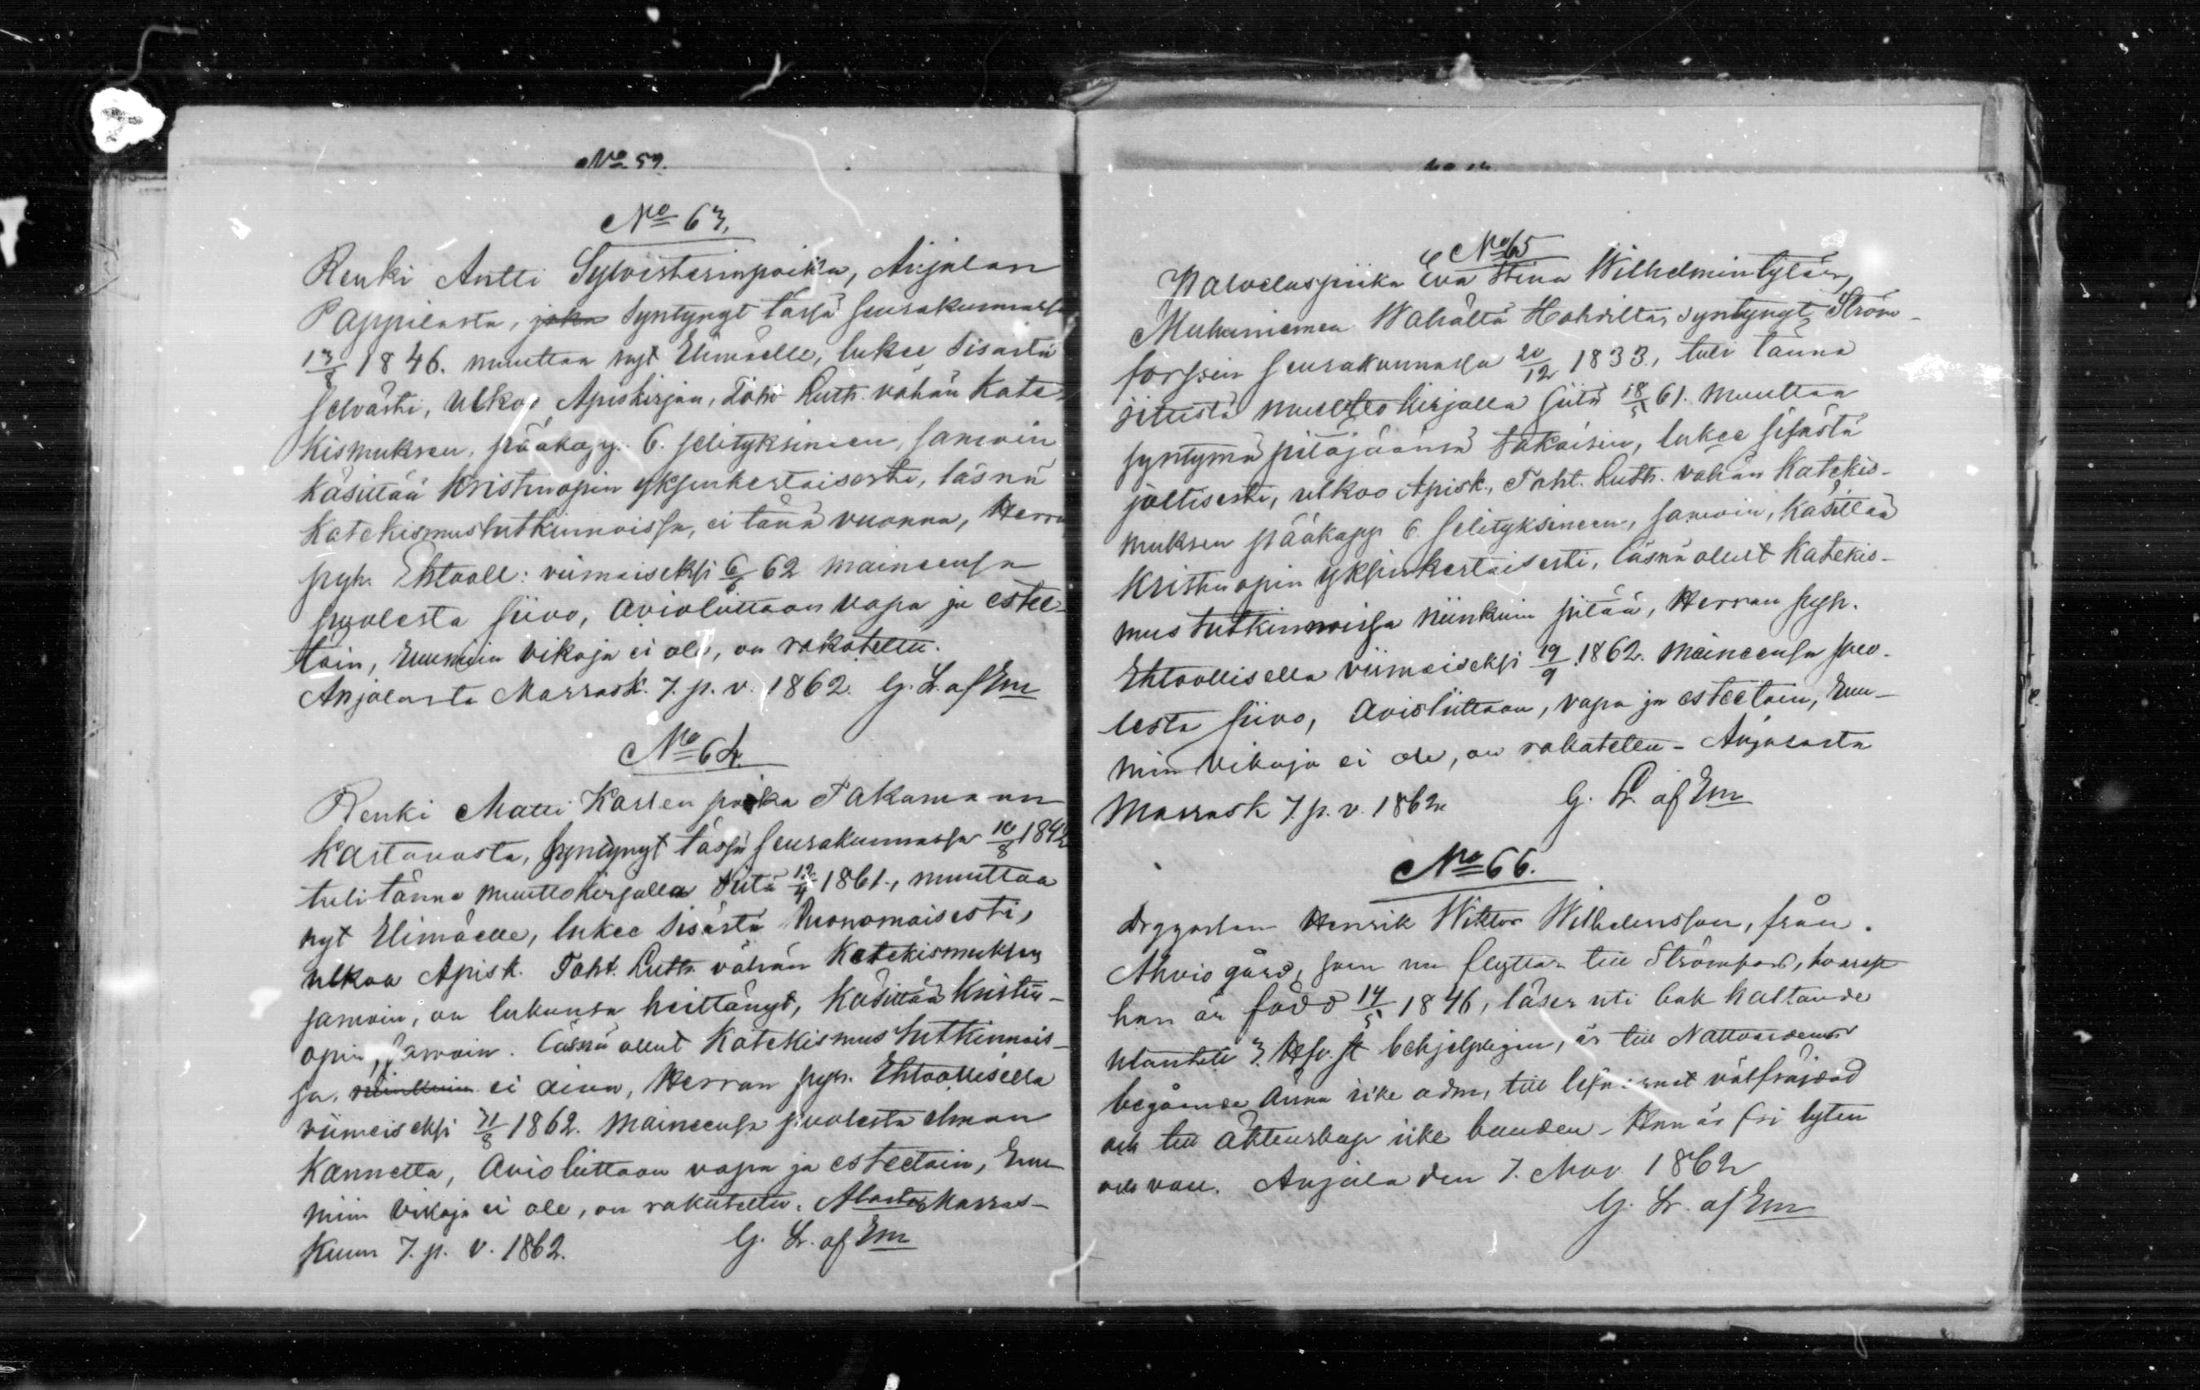 No 59.
No 63.
Renki Antti Sylvesterinpoika, Anjalan
Pappilasta, joka Syntynyt tässä seurakunnassa
13/8 1846. muuttaa nyt Elimäelle, lukee sisästä
selvästi, ulkoo Apiskirjan, Toht Luth. vähän Kate-
kismuksen, pääkapp. 6. selityksineen, samoin
käsittää Kristinopin yksinkertaisesti, läsnä
Katekismustutkinnoissa, ei tänä vuonna, Herran
pyh. Ehtooll: viimeiseksi 6/ 62 maineensa
puolesta siivo, avioliittoon vapa ja estee-
töin, ruumiin vikoja ei ole, on rokotettu.
Anjalasta Marrask. 7. p. v. 1862. G. L. af Em
No 64.
Renki Matti Kaslen poika Takamaan
Kartanosta, syntynyt tässä seurakunnassa 10/8 1842
tuli tänne muuttokirjalla sitä 1861., muuttaa
nyt Elimäelle, lukee sisästä huonomaisesti,
ulkoa Apisk. Toht. Luth. vähän Katekismuksen
samoin, on lukunsa heittänyt, käsittää Kristin-
opin, samoin. Läsnä ollut Katekismus tutkinnois-
sa, niinkuin ei aina, Herran pyh. Ehtoollisella
viimeiseksi 31/8 1862. maineensa puolesta ilman
kannetta, Avioliittoon vapa ja esteetöin, ruu-
miin vikoja ei ole, on rokotettu. Marras-
kuun 7. p. v. 1862. G. Lr. af Em
No 65
Palveluspiika Eva Stina Wilhelmintytär,
Muhniemen Wähältä Hohvilta, syntynyt Ström-
forssin seurakunnassa 20/12 1833., tuli tänne
sieltä muuttokirjalla siitä 18/5 61. muuttaa
syntymä pitäjäänsä takaisin, lukee sisästä
joltisesti, ulkoo Apisk., Toht. Luth. vähän Katekis-
muksen pääkapp 6 selityksineen, samoin, käsittää
Kristinopin yksinkertaisesti, läsnä ollut Katekis-
mus tutkinnoissa niinkuin pitää, Herran pyh.
Ehtoollisella viimeiseksi 19/9 1862. maineensa puo-
lesta siivo, Avioliittoon, vapa ja esteetöin, ruu-
miin vikoja ei ole, on rokotettu - Anjalasta
Marrask 7. p. v. 1862. G. Lr. af Em
No 66.
Henrik Wiktor Wilhelmsson, från
Ahvio gård, som nu flyttar till Strömfors, hvarest
han är född 14/5 1846, läser uti bok haltande
utantill 3. Hufv. st behjelpligen, är till Nattvardens
begående ännu icke adm, till lefvernet välfräjdad
och till äktenskap icke bunden - Han är fri lyten
och vacc. Anjala den 7. Nov. 1862
G. Lr. af Em